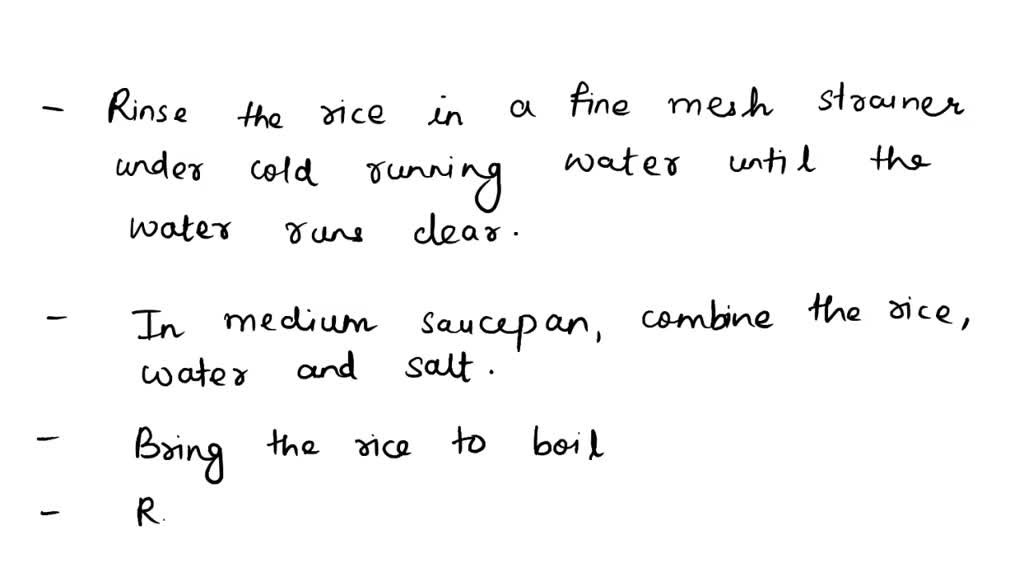 - Rinse the rice in a fine mesh strainer
under cold running water until the
water runs clear.
- In medium saucepan, combine the rice,
water and salt.
- Bring the rice to boil
- R.